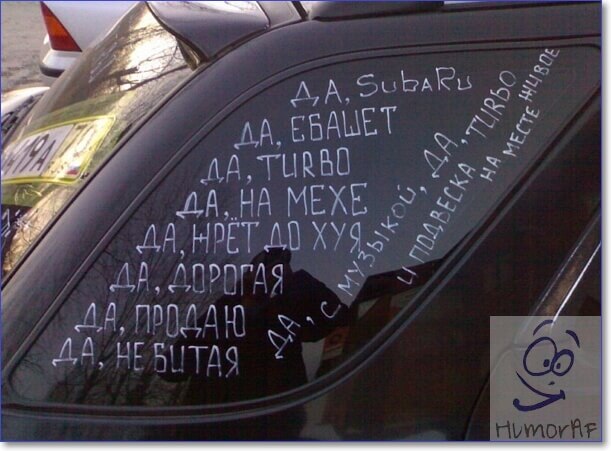 ДА, SUBARU
ДА, ЕБАШЕТ
ДА, TURBO
ДА, НА МЕХЕ
ДА, ЖРЁТ ДО ХУЯ
ДА, ДОРОГАЯ
ДА, ПРОДАЮ
ДА, НЕ БИТАЯ
ДА, С МУЗЫКОЙ, ДА, TURBO
И ПОДВЕСКА
НА МЕСТЕ ЖИВОЕ
HUMORAF